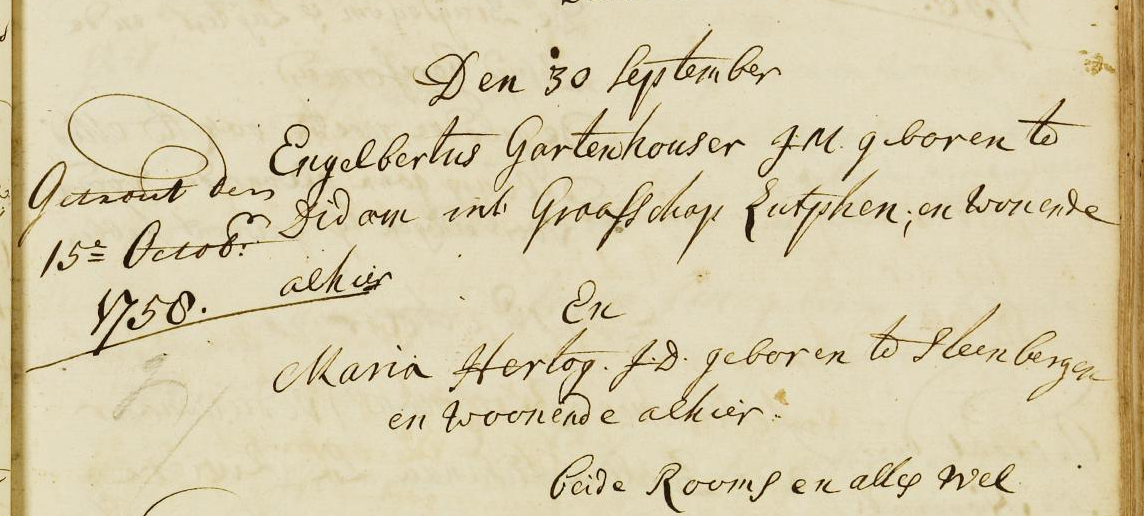 Den 30 September
Engelbertus Gartenhouser J.M. geboren te
Didam int Graafschap Zutphen; en wonende
alhier
En
Maria Hertog. J.D. geboren te Steenbergen
en woonende alhier.
beide Rooms en alles wel
Getrout den
15e Octobr.
1758.